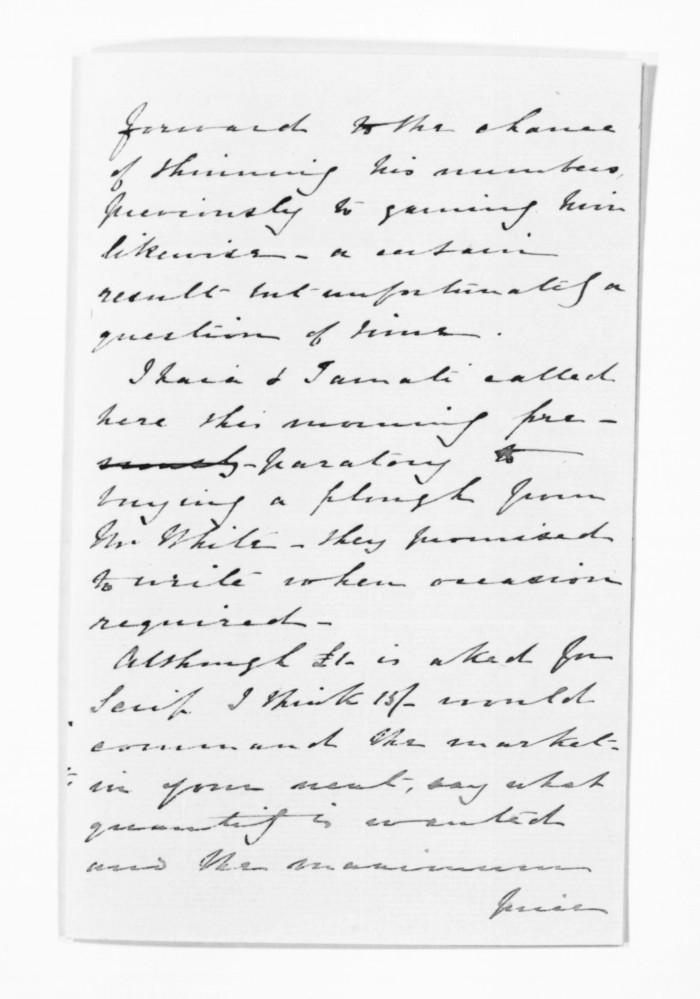 forward to the chance
of thinning his numbers,
previously to gaining him
likewise - a certain
result but unfortunately a
question of time.
Ihaia & Tamati called
here this morning pre-
paratory to
buying a plough from
Mr White - they promised
to write when occasion
required -
Although £1- is asked for
Scrip I think 15/- would
command the market -
in your next, say what
quantity is wanted
and the maximum
price